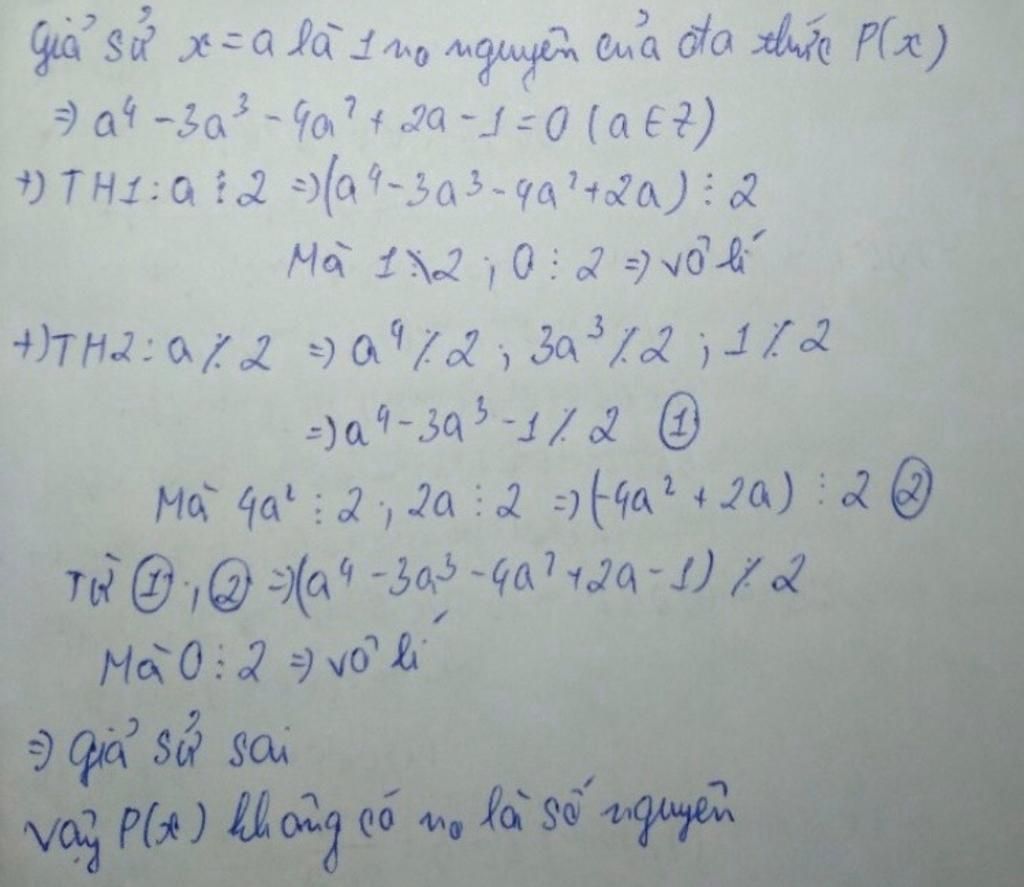 Giả sử x = a là 1 no nguyên của đa thức P(x)
⇒ a⁴ - 3a³ - 4a² + 2a - 1 = 0 (a ∈ Z)
+) TH1: a ⋮ 2 ⇒ (a⁴ - 3a³ - 4a² + 2a) ⋮ 2
Mà 1 ⋮̸ 2 ; 0 ⋮ 2 ⇒ vô lí
+) TH2: a ⋮̸ 2 ⇒ a⁴ ⋮̸ 2 ; 3a³ ⋮̸ 2 ; 1 ⋮̸ 2
⇒ a⁴ - 3a³ - 1 ⋮̸ 2 ①
Mà 4a² ⋮ 2 ; 2a ⋮ 2 ⇒ (-4a² + 2a) ⋮ 2 ②
Từ ① ; ② ⇒ (a⁴ - 3a³ - 4a² + 2a - 1) ⋮̸ 2
Mà 0 ⋮ 2 ⇒ vô lí
⇒ Giả sử sai
Vậy P(x) không có no là số nguyên